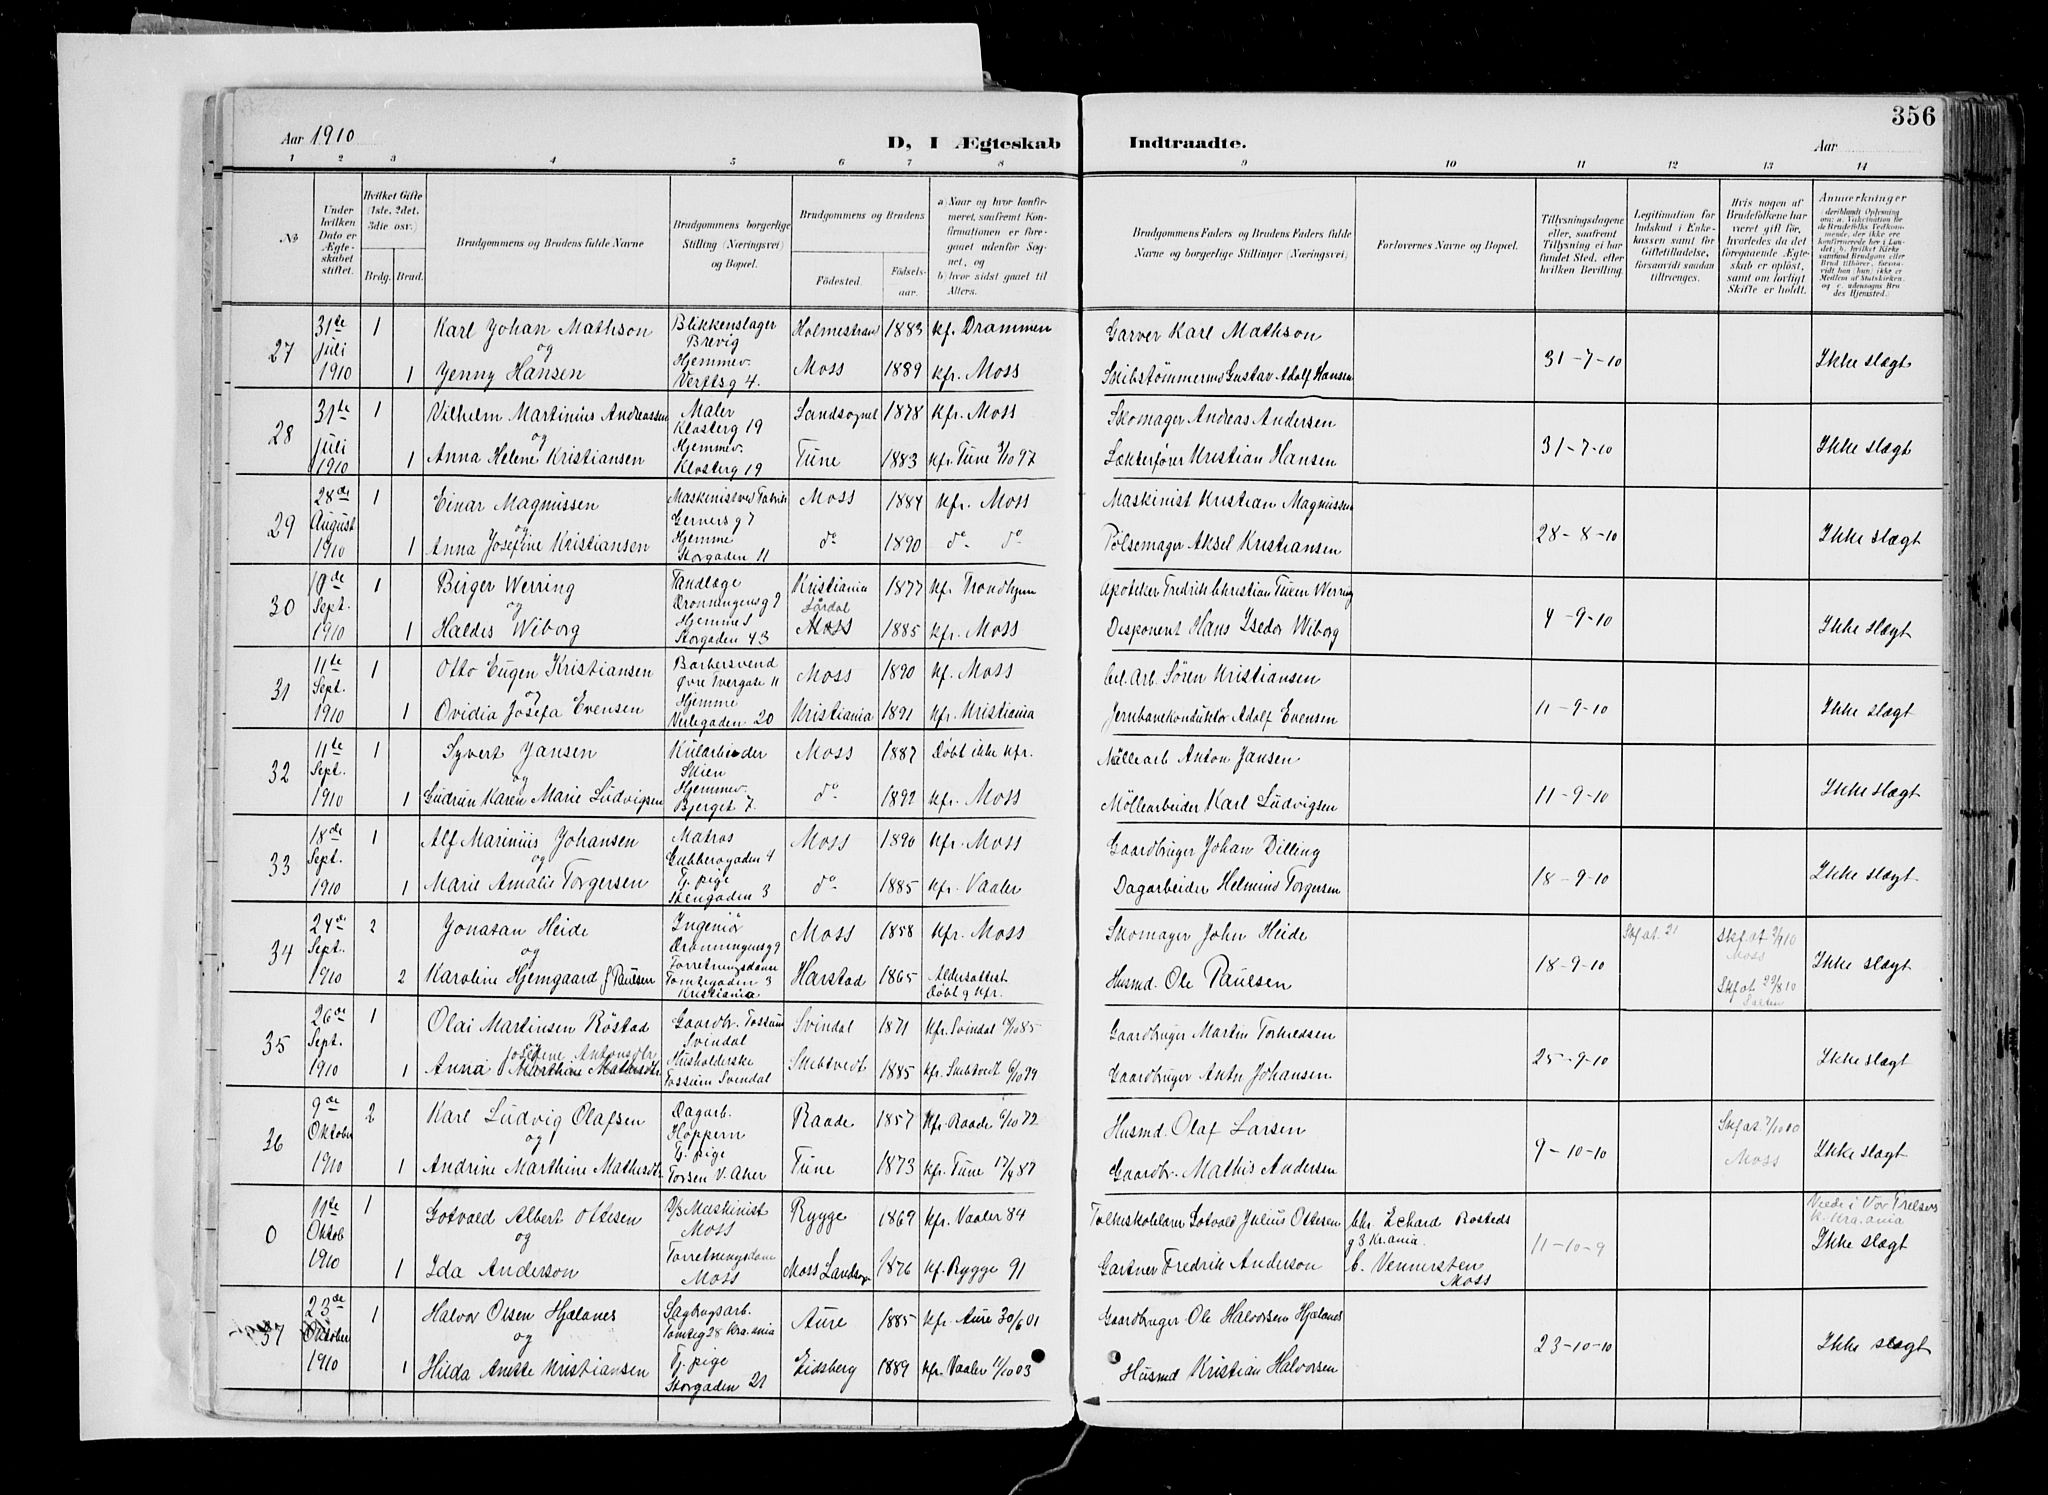 356
Aar 1910
D, I Ægteskab Indtraadte.
Aar
1 2 3 4 5 6 7 8 9 10 11 12 13 14
No
Under hvilken Dato er Ægteskabet stiftet.
Hvilket Gifte (1ste, 2det, 3die osv.)
Brdg. Brud.
Brudgommens og Brudens fulde Navne
Brudgommens borgerlige Stilling (Næringsvei) og Bopæl.
Brudgommens og Brudens
Fødested. Fødselsaar.
a) Naar og hvor konfirmeret, saafremt Konfirmationen er foregaaet udenfor Sognet, og
b) hvor sidst gaaet til Alters.
Brudgommens Faders og Brudens Faders fulde Navne og borgerlige Stillinger (Næringsvei)
Forlovernes Navne og Bopæl.
Tillysningsdagene eller, saafremt Tillysning ei har fundet Sted, efter hvilken Bevilling.
Legitimation for Indskud i Enkekassen samt for Giftetilladelse, forsaavidt saadan tiltrænges.
Hvis nogen af Brudefolkene har været gift før, hvorledes da det foregaaende Ægteskab er opløst, samt om lovligt Skifte er holdt.
Anmærkninger
27 31te Juli 1910 1 Karl Johan Mathson Blikkenslager Brevig Holmestrand 1883 kf. Drammen Garver Karl Mathson 31-7-10 Ikke slægt
og
1 Jenny Hansen Hjemmev. Verftsg 4. Moss 1889 kfr. Moss Skibstømmermd Gustav Adolf Hansen
28 31te Juli 1910 1 Vilhelm Martinius Andreassen Maler Klosterg 19 Landsognet 1878 kfr. Moss Skomager Andreas Andersen 31-7-10 Ikke slægt
og
1 Anna Helene Kristiansen Hjemmev. Klosterg 19 Tune 1883 kfr. Tune 3/10 97 Lækterfører Kristian Hansen
29 28de August 1910 1 Einar Magnussen Maskinist ved Fabrik Gernersg 7 Moss 1884 kfr. Moss Maskinist Kristian Magnussen 28-8-10 Ikke slægt
og
1 Anna Josefine Kristiansen Hjemme Storgaden 11 do 1890 do do Pølsemager Aksel Kristiansen
30 Sept. 1910 1 Birger Werring Tandlæge Dronningensg 9 Kristiania 1877 kfr. Trondhjem Apotheker Fredrik Christian Tuxen Werring 4-9-10 Ikke slægt
og
1 Haldis Wiborg Hjemme Storgaden 43 Moss 1885 kfr. Moss Disponent Hans Isedor Wiborg
31 11te Sept. 1910 1 Otto Eugen Kristiansen Barbersvend Øvre Tvergate 11 Moss 1890 kf. Moss Cel. Arb. Søren Kristiansen 11-9-10 Ikke slægt
og
1 Ovidia Josefa Evensen Hjemme Verlegaden 20 Kristiania 1891 kfr. Kristiania Jernbanekonduktør Adolf Evensen
32 11te Sept. 1910 1 Syvert Jansen Kularbeider Skien Moss 1887 Døbt ikke kfr. Møllearb Anton Jansen 11-9-10 Ikke slægt
og
1 Gudrun Karen Marie Ludvigsen Hjemmev. Bjerget 7. do 1892 kfr. Moss Møllearbeider Karl Ludvigsen
33 18de Sept. 1910 1 Alf Marinius Johansen Matros Gubberogaden 4 Moss 1890 kfr. Moss Gaardbruger Johan Dilling 18-9-10 Ikke slægt
og
1 Marie Amalie Torgersen Tj. pige Stengaden 3 do 1885 kfr. Vaaler Dagarbeider Helmins Torgersen
34 24de Sept. 1910 2 Jonatan Heide Ingeniør Dronningensg 9 Moss 1858 kfr. Moss Skomager John Heide 18-9-10 Skf.at. 21 Skf.at 2/9 10 Moss Ikke slægt
og
2 Karoline Hjemgaard f. Paulsen Forretningsdame Tomtegaden 3 Kristiania Harstad 1865 Aldersattest Døbt og kfr. Husmd. Ole Paulsen Skf.at 22/8 10
35 26de Sept. 1910 1 Olai Martinsen Røstad Gaardbr. Tossum Svindal Svindal 1871 kfr. Svindal /10 85 Gaardbruger Martin Torkildsen 25-9-10 Ikke slægt
Josefine Antonsdtr
1 Anna Marthine Mathisdtr Husholderske Tossum Svendal Skibtvedt 1885 kfr. Skibtvedt 6/10 99 Gaardbruger Antn Johansen
36 9de Oktober 1910 2 Karl Ludvig Olafsen Dagarb. Hoppern Raade 1857 kfr. Raade 6/10 72 Husmd. Olaf Larsen 9-10-10 Skf.at. 7/10 10 Moss Ikke slægt
og
1 Andrine Marthine Mathisdtr Tj. pige Torsen V. Aker Tune 1873 kfr. Tune 17/4 87 Gaardbr. Mathis Andersen
0 11te Oktob 1910 1 Gotvald Albert Ottesen D/S Maskinist Moss Rygge 1869 kfr. Vaaler 84 Folkeskolelærer Gotvald Julius Ottesen Chr. Echard Rosteds g 3 Kr.ania. 11-10-9 Viede i Vor Frelsers K. Kra.ania Ikke slægt
og
1 Ida Anderson Forretningsdame Moss Moss Landsogn 1876 kf. Rygge 91 Gartner Fredrik Anderson C. Vennersten Moss
37 23de Oktober 1910 1 Halvor Olsen Hjælanes Sagbrugsarb. Tomteg 28 Kra.ania Aure 1885 kfr. Aure 30/6 01 Gaardbruger Ole Halvorsen Hjælanes 23-10-10 Ikke slægt
og
1 Hilda Anette Kristiansen Tj. pige Storgaden 21 Eidsberg 1889 kfr. Vaaler 11/10 03 Husmd Kristian Halvorsen